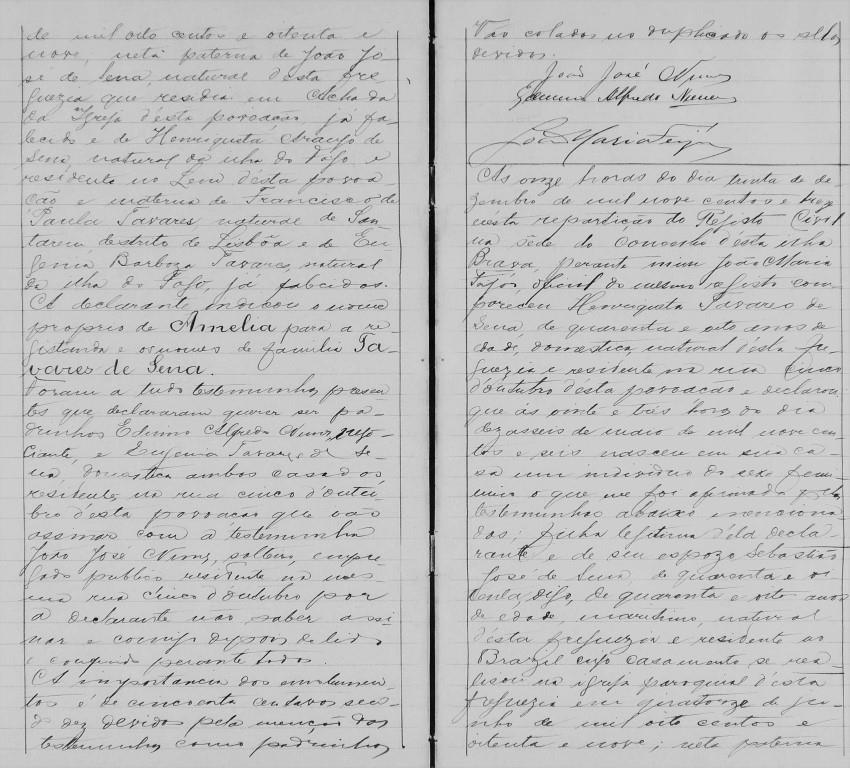 de mil oito centos e oitenta e
nove, neta paterna de João Jo-
sé de Sena, natural d'esta fre
guezia que residia em Achada
da Igreja d'esta povoação, já fa-
lecido e de Henriqueta Araujo de
Sena, natural da ilha do Fogo e
residente no Lem d'esta povoa
ção e materna de Francisco de
Paula Tavares, natural de San-
tarem, destrito de Lisbôa e de Eu
genia Barboza Tavares, natural
da ilha do Fogo, já falecidos.
A declarante indicou o nome
proprio de Amelia para a re-
gistanda e os nomes de familia Ta-
vares de Sena.
Foram a tudo testemunhas presen
tes que declararam querer ser pa-
drinhos Alfredo Nunes, nego-
ciante, e Eugenia Tavares de Se-
na, domestica ambos casados
residentes na rua cinco d'outu-
bro d'esta povoação que vão
assinar com a testemunha
João José Nunes, solteiro, empre
gado publico residente na mes-
ma rua cinco d'outubro por
a declarante não saber assi
nar e comigo depois de lido
e conferido perante todos.
A importancia dos emolumen-
tos é de cincoenta centavos sen-
do dez devidos pela menção das
testemunhas como padrinhos
Vão colados no duplicado os selos
devidos.
João José Nunes
Alfredo Nunes
João Maria Feijó
As onze horas do dia trinta de de-
zembro de mil nove centos e treze
n'esta repartição do Registo Civil
na séde do concelho d'esta ilha
Brava, perante mim João Maria
Feijó, oficial do mesmo registo com-
pareceu Henriqueta Tavares de
Sena, de quarenta e oito anos de
edade, domestica natural d'esta fre-
guezia e residente na rua cinco
d'outubro d'esta povoação e declarou
que ás vinte e três horas do dia
dezasseis de maio de mil nove cen-
tos e seis nasceu em sua ca-
sa um individuo do sexo femi-
nino o que me foi afirmado pelas
testemunhas abaixo menciona-
das; filha legitima d'ela decla-
rante e de seu espozo Sebastião
José de Sena, de quarenta e oi
tenta, digo, de quarenta e oito anos
de edade, maritimo, natural
d'esta freguezia e residente no
Brazil cujo casamento se rea-
lisou na igreja paroquial d'esta
freguezia em quatorze de ju-
nho de mil oito centos e
oitenta e nove; neta paterna